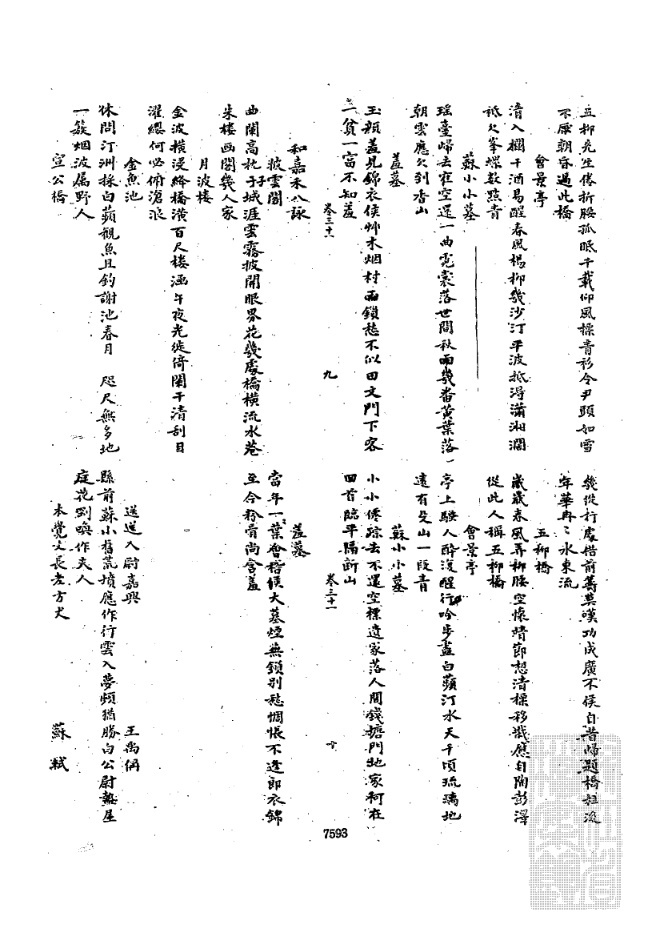 五柳先生倦折腰孤眠千載仰風標青衫令尹頭如雪
不厭朝昏過此橋
會景亭
清入欄干酒易醒春風楊柳幾沙汀平波抵得瀟湘濶
祗欠峯螺數點青
蘇小小墓
瑶臺歸去寉空還一曲霓裳落世間秋雨幾番黃葉落
朝雲應欠到香山
羞墓
玉顏羞見錦衣侯艸木烟村雨鎖愁不似田文門下客
一貧一富不知羞
卷三十 九
和嘉禾八詠
披雲閣
曲闌高扎子城涯雲霧披開眼界花幾處橋橫流水巷
朱楼画閣幾人家
月波楼
金波橫浸絳橋潢百尺楼涵午夜光徙倚闌干清刮目
濯纓何必俯滄浪
金魚池
休問汀洲採白蘋觀魚且釣謝池春月 咫尺無多地
一簇烟波屬野人
宣公橋
幾從行處楷前蓍莫嘆功成廣不侯自昔歸題橋柱後
年華冉〻水東流
五柳橋
歲歲春風弄柳腰空懷晴節想清標移栽應自陶彭澤
從此人稱五柳橋
會景亭
亭上騷人醉復醒行吟步盡白蘋汀水天千頃琉璃地
遠有殳山一段青
蘇小小墓
小小僊踪去不還空標遺冢落人間錢塘門地家何在
回首臨平隔斷山
卷三十一 十
羞墓
當年一葉會稽侯大墓煙蕪鎖別愁惆悵不逢郎衣錦
至今粉骨尚含羞
送人尉嘉興 王禹偁
縣前蘇小舊荒墳應作行雲入夢頻猶勝白公尉盩厔
庭花別喚作夫人
本覺文長老方丈 蘇軾
7593